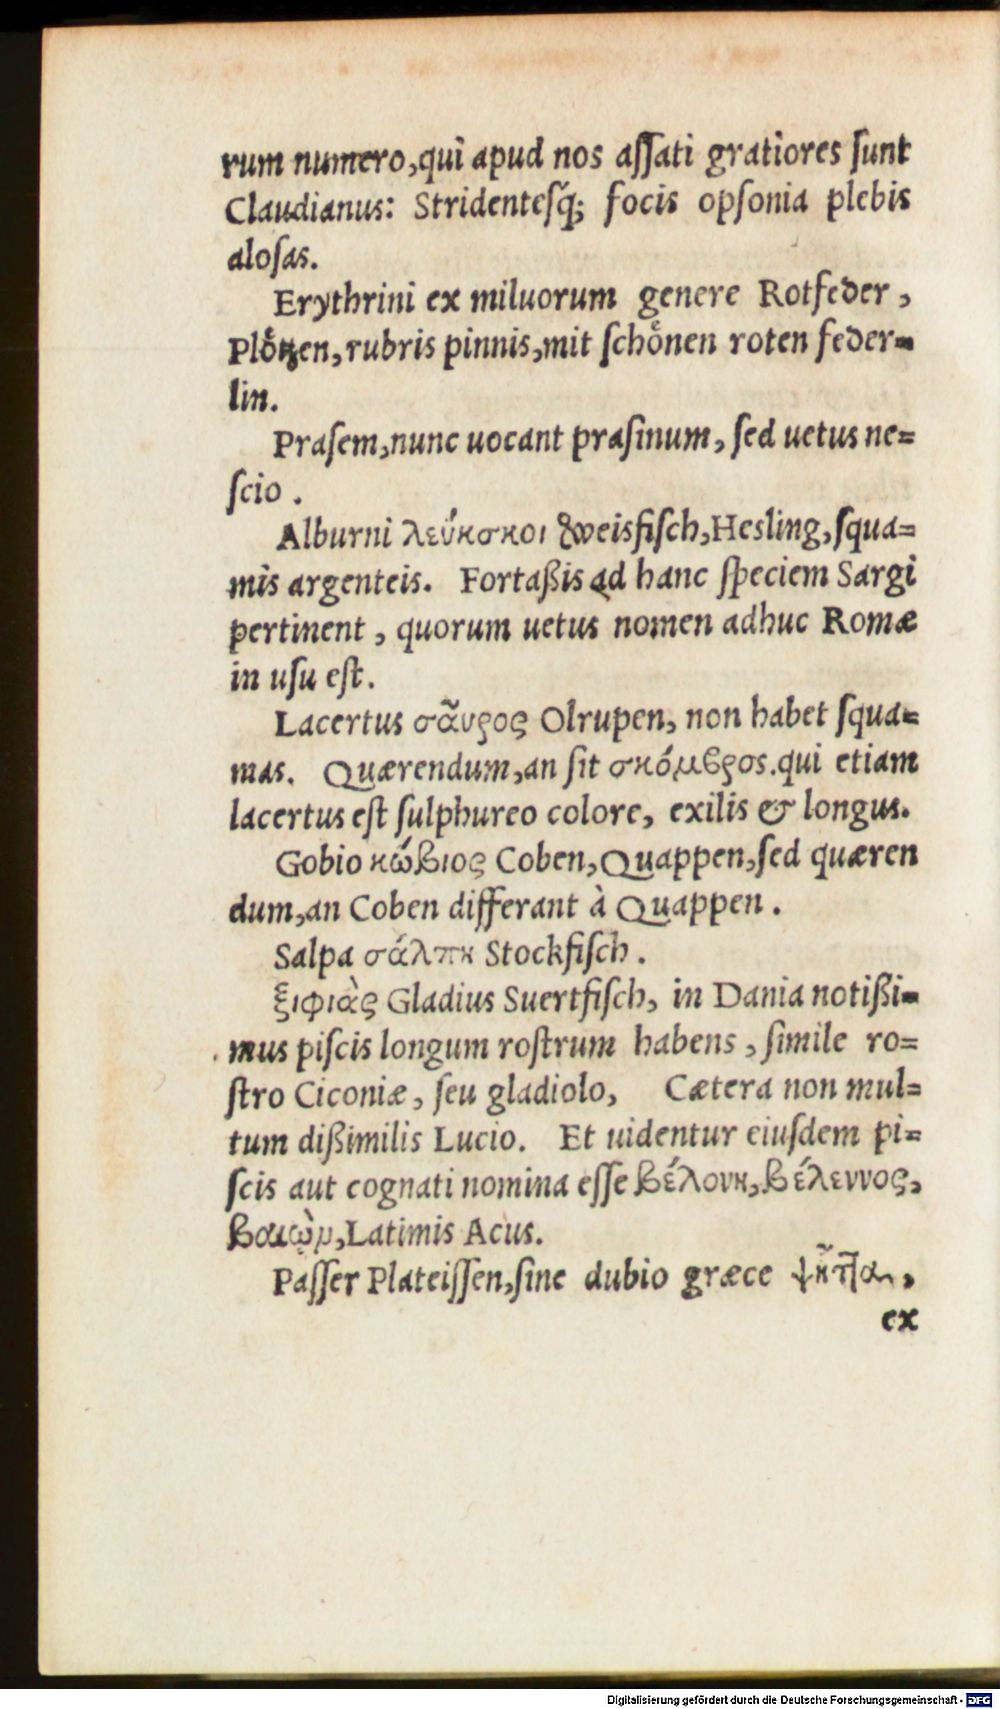 rum numero, qui apud nos aſſati gratiores ſunt
Claudianus: Stridentesq́; focis opſonia plebis
aloſas.
Erythrini ex miluorum genere Rotfeder,
Ploͤtzen, rubris pinnis, mit ſchoͤnen roten feder=
lin.
Praſem, nunc uocant praſinum, ſed uetus ne=
ſcio.
Alburni λεύκσκοι Weisfiſch, Hesling, ſqua=
mis argenteis. Fortaßis ad hanc ſpeciem Sargi
pertinent, quorum uetus nomen adhuc Romæ
in uſu eſt.
Lacertus σᾶυρος Olrupen, non habet ſqua=
mas. Quærendum, an ſit σκόμβρος. qui etiam
lacertus eſt ſulphureo colore, exilis & longus.
Gobio κώβιος Coben, Quappen, ſed quæren
dum, an Coben differant à Quappen.
Salpa σάλπη Stockfiſch.
ξιφιὰς Gladius Suertfiſch, in Dania notißi=
mus piſcis longum roſtrum habens, ſimile ro=
ſtro Ciconiæ, ſeu gladiolo, Cætera non mul=
tum dißimilis Lucio. Et uidentur eiuſdem pi=
ſcis aut cognati nomina eſſe βέλονη, βέλεννος,
Latimis Acus.
Paſſer Plateiſſen, ſine dubio græce ψῆτʖα,
ex
Digitalisierung gefördert durch die Deutsche Forschungsgemeinschaft - DFG